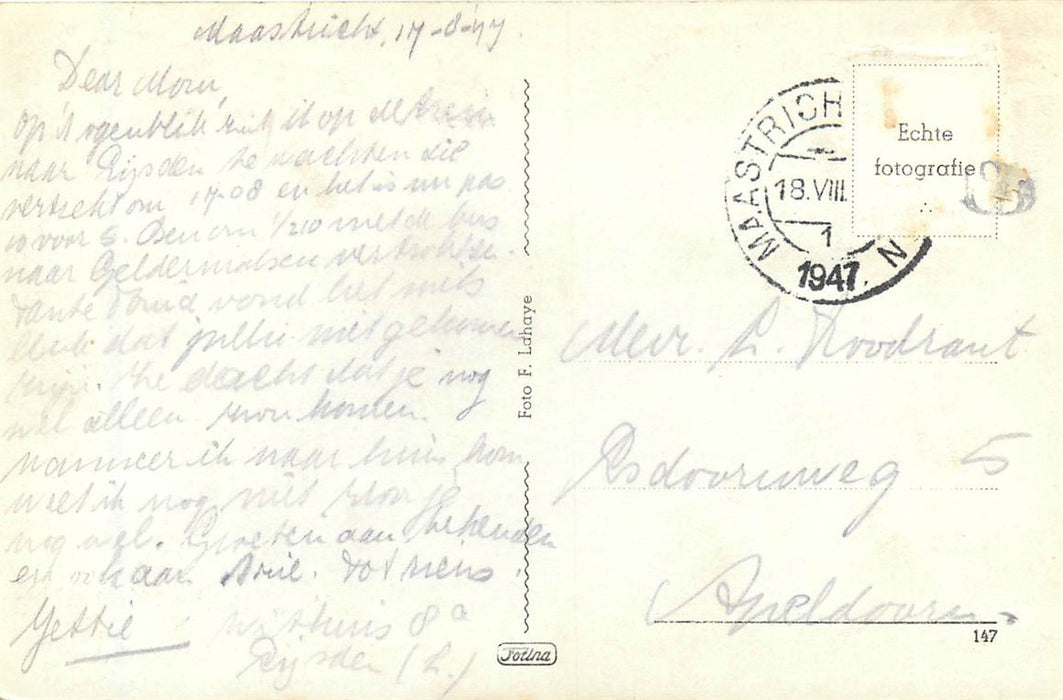 Maastricht, 17-8-47.
Dear Mom,
Op 't ogenblik zit ik op de trein
naar Eijsden te wachten die
vertrekt om 17.08 en het is nu pas
10 voor 5. Ben om 1/2 10 met de bus
naar Geldermalsen vertrokken.
Tante vond het niets
leuk dat jullie niet gekomen
zijn. Ze dacht dat je nog
wel alleen zou komen.
Wanneer ik naar huis kom
weet ik nog niet hoor je
nog wel. Groeten aan bekenden
en ook aan Arie. Tot ziens.
Yettie
withuis 8a
Eijsden (L.)
Foto F. Lahaye
Fotina
MAASTRICH
18.VIII
1
1947.
N
Echte
fotografie
Mevr. L. Roodzant
Esdoornweg 5
Apeldoorn.
147